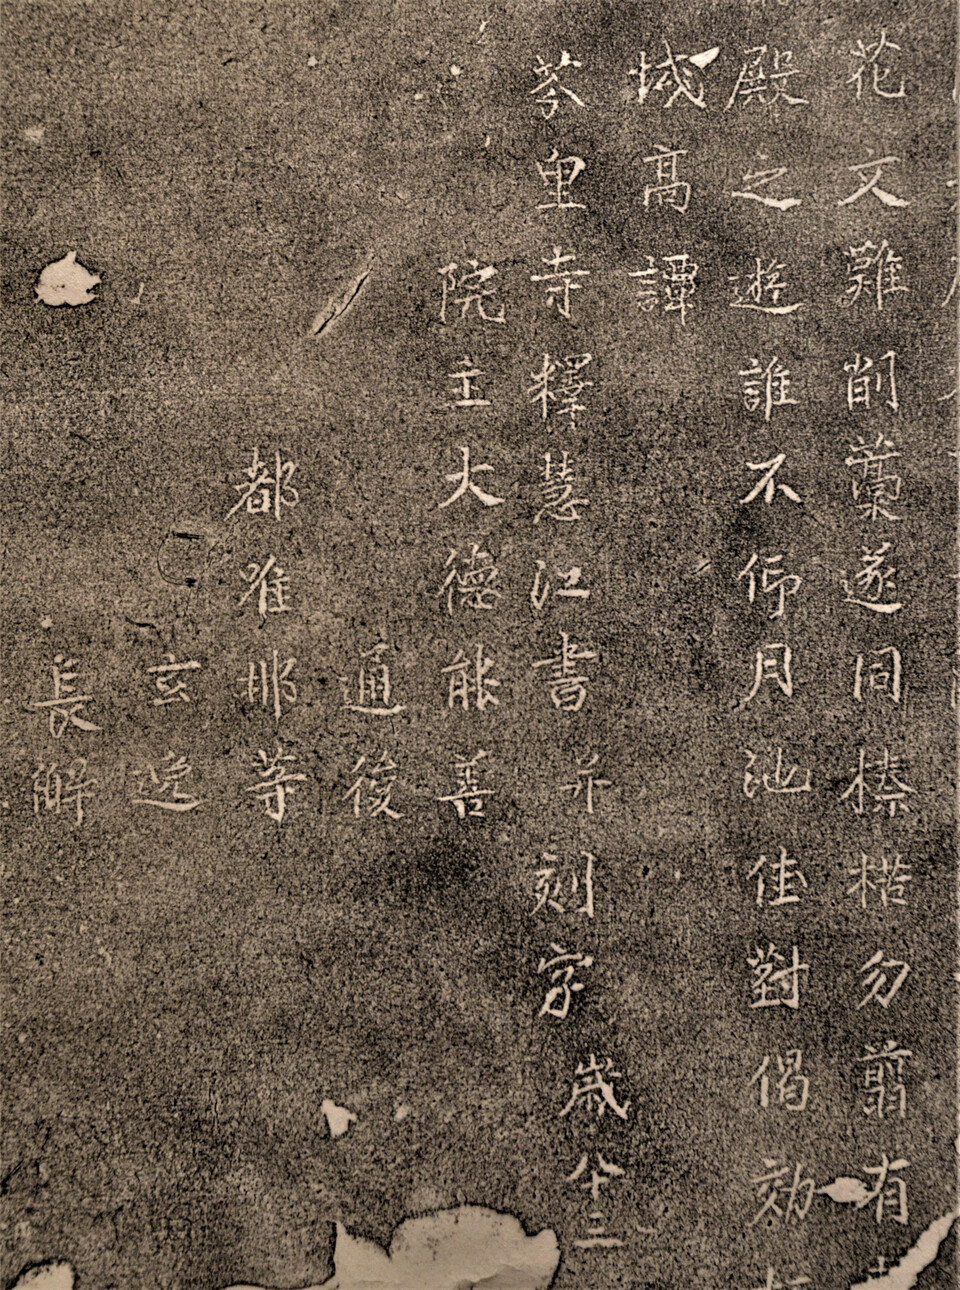 花文難削藁遂同榛楛勿翦有
殿之遊誰不停月池佳對偈効
城高譚
芬皇寺釋慧江書并刻字 歲八十三
院主大德能善
通俊
都唯那等
玄逸
長解